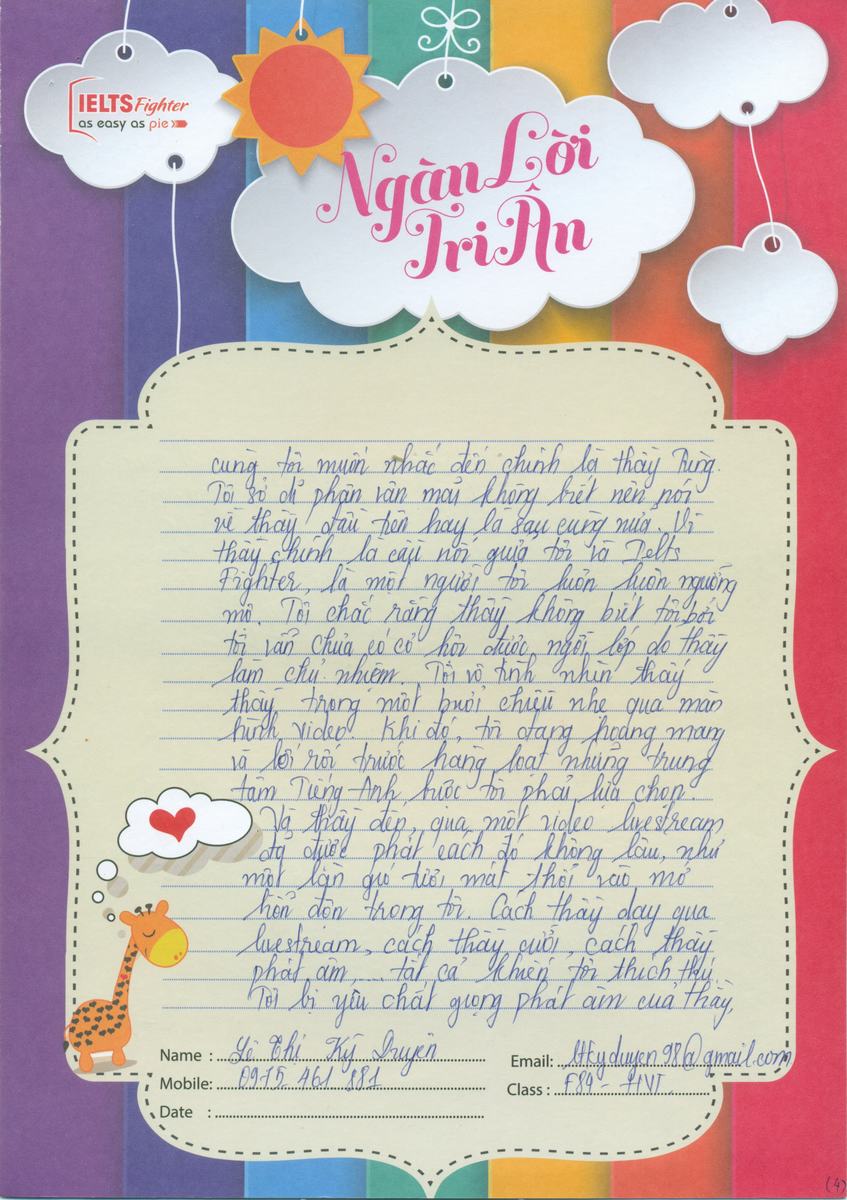 IELTS Fighter
as easy as pie
Ngàn Lời
Tri Ân
cùng tôi muốn nhắc đến chính là thầy Tùng.
Tôi sở dĩ phân vân mãi không biết nên nói
về thầy đầu tiên hay là sau cùng nữa. Vì
thầy chính là cầu nối giữa tôi và Ielts
Fighter, là một người tôi luôn luôn ngưỡng
mộ. Tôi chắc rằng thầy không biết tôi bởi
tôi vẫn chưa có cơ hội được ngồi lớp do thầy
làm chủ nhiệm. Tôi vô tình nhìn thấy
thầy trong một buổi chiều nhẹ qua màn
hình video. Khi đó, tôi đang hoang mang
và bối rối trước hàng loạt những trung
tâm Tiếng Anh buộc tôi phải lựa chọn.
Và thầy đến, qua một video livestream
đã được phát cách đó không lâu, như
một làn gió tươi mát thổi vào mớ
hỗn độn trong tôi. Cách thầy dạy qua
livestream, cách thầy cười, cách thầy
phát âm,... tất cả khiến tôi thích thú.
Tôi bị yêu chất giọng phát âm của thầy,
Name : Lê Thị Kỳ Duyên
Email: ltkyduyen98@gmail.com
Mobile: 0975 461 881
Class : F84 - HVT
Date :
(4)